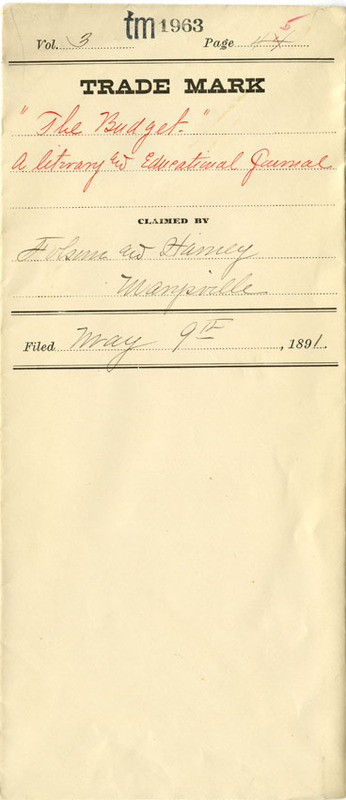 tm 1963
Vol. 3 Page 45
TRADE MARK
"The Budget."
A literary and Educational Journal
CLAIMED BY
Folsom and Harney
Marysville
Filed May 9th, 1891.